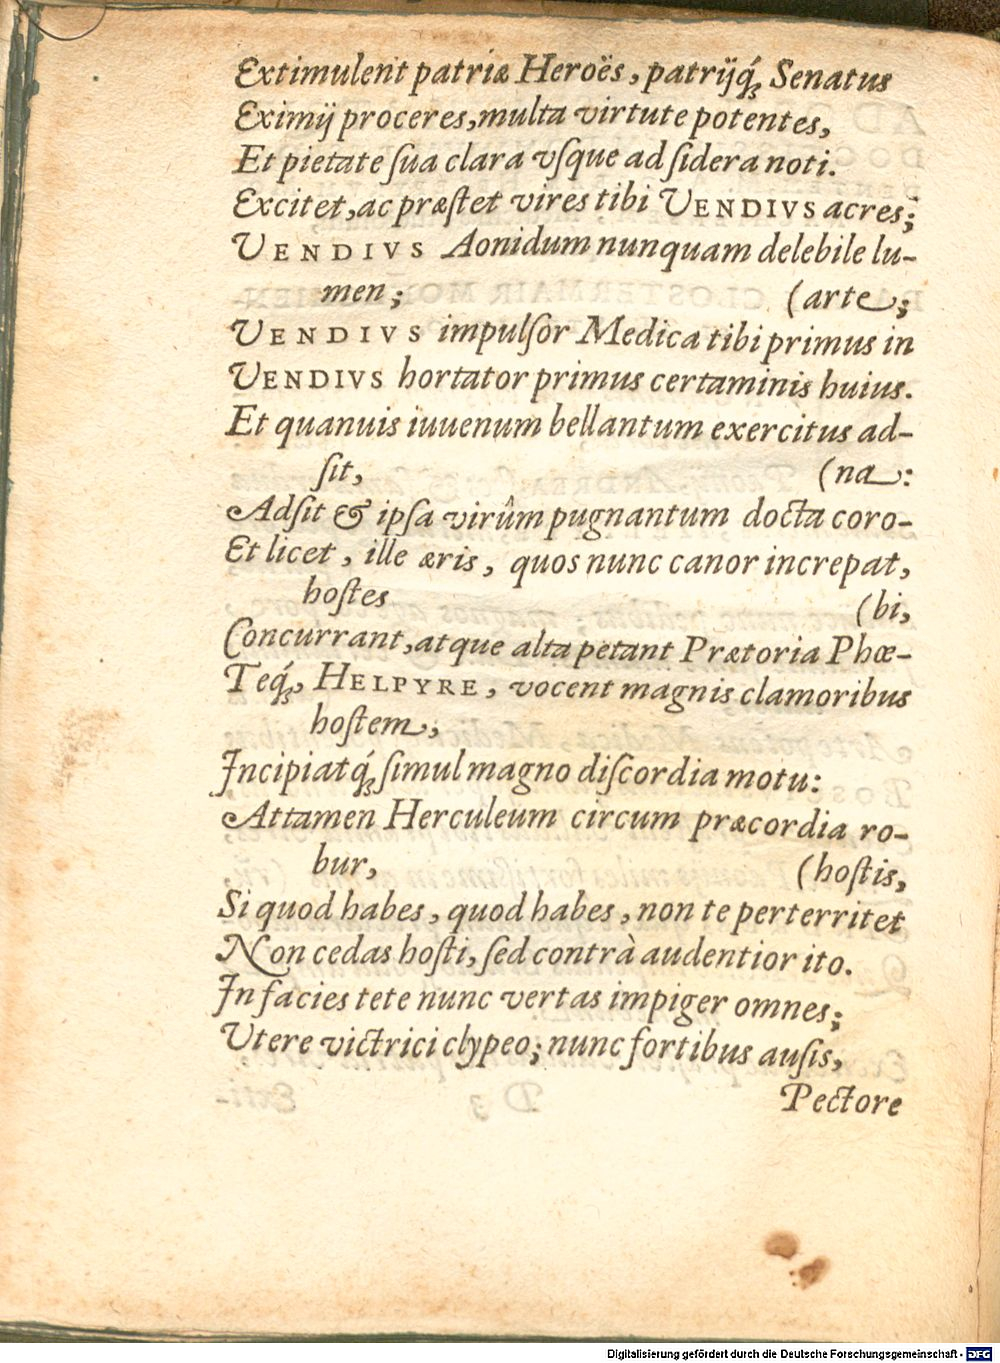 Extimulent patriæ Heroës, patrijq́; Senatus
Eximij proceres, multa virtute potentes,
Et pietate ſua clara vſque ad ſidera noti.
Excitet, ac præſtet vires tibi VENDIVS acres;
VENDIVS Aonidum nunquam delebile lu-
men; (arte;
VENDIVS impulſor Medica tibi primus in
VENDIVS hortator primus certaminis huius.
Et quanuis iuuenum bellantum exercitus ad-
ſit, (na:
Adſit & ipſa virûm pugnantum docta coro-
Et licet, ille æris, quos nunc canor increpat,
hoſtes (bi,
Concurrant, atque alta petant Prætoria Phœ-
Teq́;, HELPYRE, vocent magnis clamoribus
hoſtem,
Incipiatq́; ſimul magno diſcordia motu:
Attamen Herculeum circum præcordia ro-
bur, (hoſtis,
Si quod habes, quod habes, non te perterritet
Non cedas hoſti, ſed contrà audentior ito.
In facies tete nunc vertas impiger omnes;
Vtere victrici clypeo; nunc fortibus auſis,
Pectore
Digitalisierung gefördert durch die Deutsche Forschungsgemeinschaft - DFG